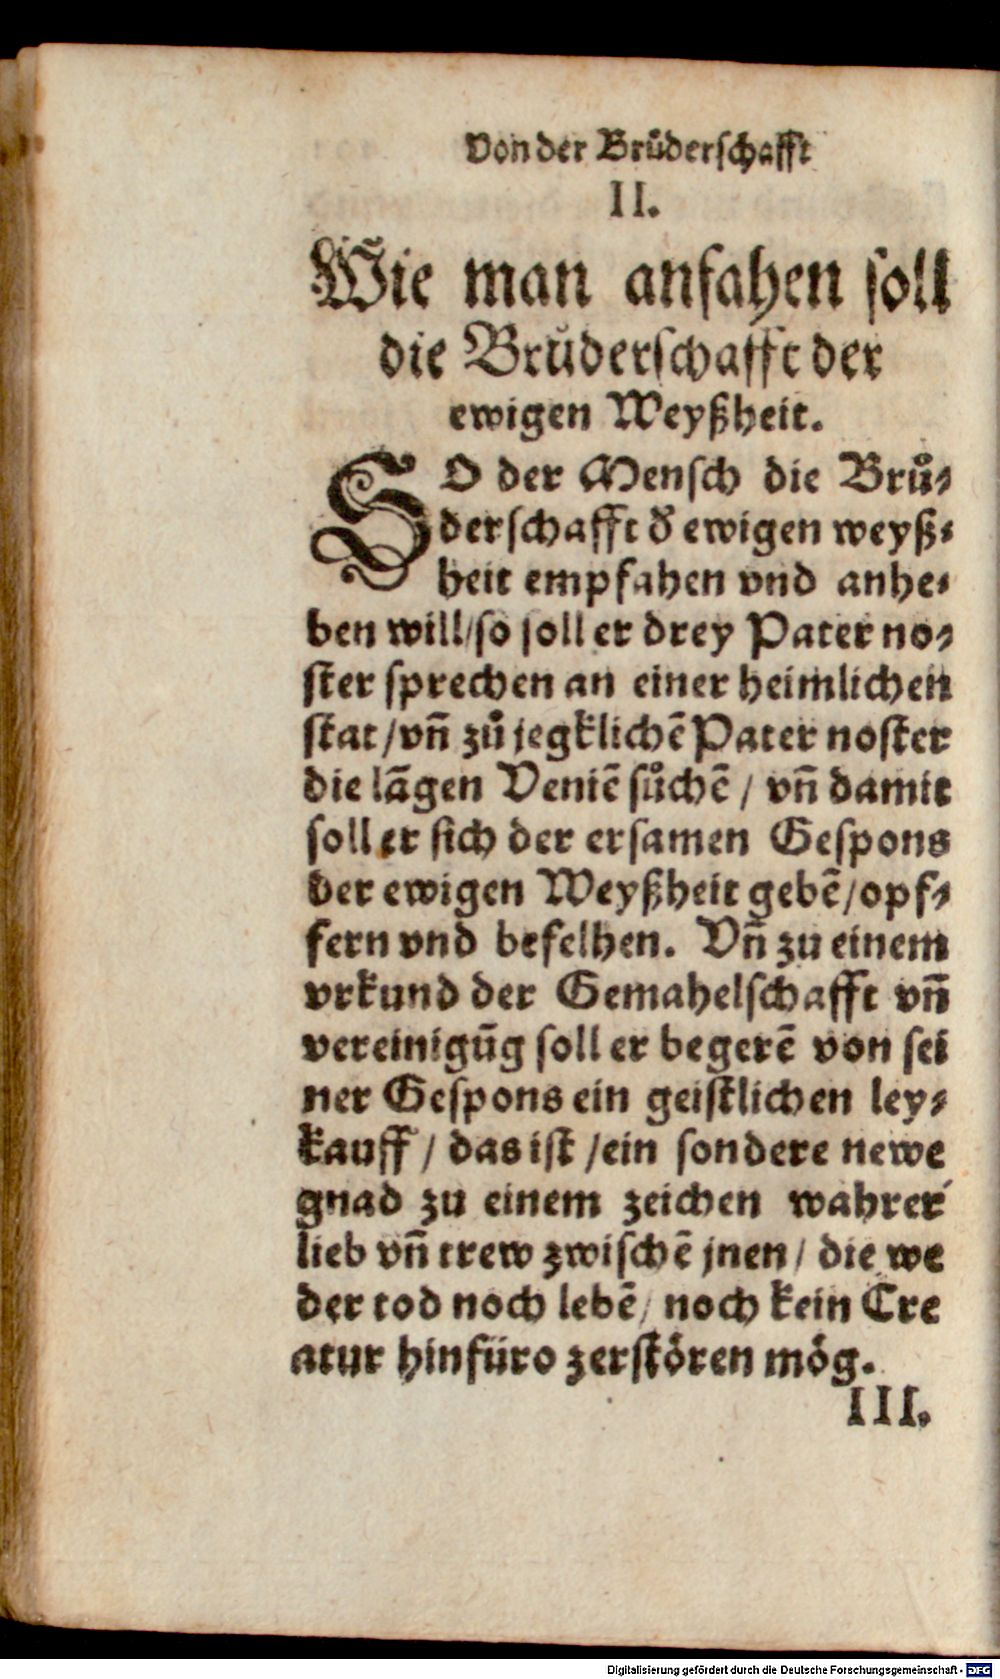 Von der Brůderschafft
II.
Wie man anfahen soll
die Brůderschafft der
ewigen Weyßheit.
SO der Mensch die Brů⸗
derschafft d̓ ewigen weyß⸗
heit empfahen vnd anhe⸗
ben will/so soll er drey Pater no⸗
ster sprechen an einer heimlichen
stat/vñ zů jegklichẽ Pater noster
die lãgen Veniẽ sůchẽ/ vñ damit
soll er sich der ersamen Gespons
der ewigen Weyßheit gebẽ/opf⸗
fern vnd befelhen. Vñ zu einem
vrkund der Gemahelschafft vñ
vereinigũg soll er begerẽ von sei
ner Gespons ein geistlichen ley⸗
kauff/ das ist/ein sondere newe
gnad zu einem zeichen wahrer
lieb vñ trew zwischẽ jnen/ die we
der tod noch lebẽ/ noch kein Cre
atur hinfüro zerstören mög.
III.
Digitalisierung gefördert durch die Deutsche Forschungsgemeinschaft - DFG